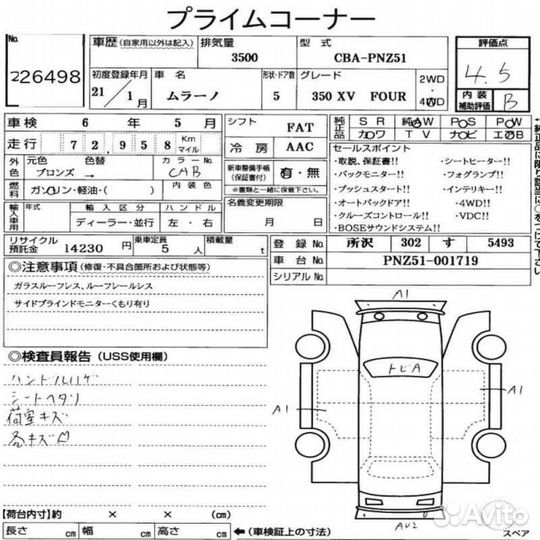 プライムコーナー
No.
26498
車歴 (自家用以外は記入)
排気量
3500
型式
CBA-PNZ51
評価点
4.5
初度登録年月
21/1月
車名
ムラーノ
形状・ドア数
5
グレード
350 XV FOUR
2WD
・
4WD
内装
補助評価
B
車検 6年 5月
走行 72,958 Km マイル
シフト FAT
冷房 AAC
純正品
SR 純AW PS PW
カワ TV ナビ エアB
外色
元色 色替
ブロンズ →
カラーNo.
CAB
燃料
ガソリン・軽油・( )
内装色
新車整備手帳
(保証書付)
有・無
※書類と別に車に付けて下さい
名義変更期限
月 日
セールスポイント
・取説、保証書!!
・シートヒーター!!
・バックモニター!!
・フォグランプ!!
・プッシュスタート!!
・インテリキー!!
・オートバックドア!!
・4WD!!
・クルーズコントロール!!
・VDC!!
・BOSEサウンドシステム!!
輸入車用
年式
輸入区分
ディーラー・並行
ハンドル
左・右
リサイクル
預託金
14230 円
乗車定員
5 人
積載量
t
登録No. 所沢 302 す 5493
車台No. PNZ51-001719
シリアルNo.
◎注意事項 (修復・不具合箇所および状態等)
ガラスルーフレス、ルーフレールレス
サイドブラインドモニターくもり有り
◎検査員報告 (USS使用欄)
ハンドルハゲ
シートヘタリ
荷室キズ
各キズ凹
A1
トビA
A1
A1
AU2
スペア
【荷台内寸】 × × (cm)
長さ cm 幅 cm 高さ cm
←(車検証上の寸法)
Avito